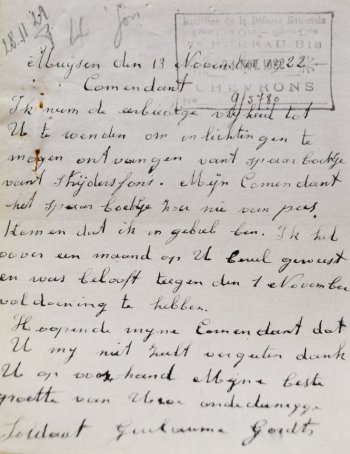 28.11.22
Ministère de la Défense Nationale
7e BUREAU BIS
CHEVRONS
No 9/5780
Muijsen den 13 November 1922
Comendant
Ik num de eerbiedige vrijheid tot
U te wenden om inlichtingen te
mogen ontvangen vant spaar boekje
vant Strijdersfons. Mijn Comendant
het spaar boekje zou nie van pas
komen dat ik in gebrek ben. Ik heb
over een maand op U geweest
en was belooft teegen den 1 November
voldoening te hebben.
Hoopende myne Comendant dat
U my niet zult vergeeten dank
U op voor hand Myne beste
groette van Uwe onderdanigge
Soldaat Guillaume